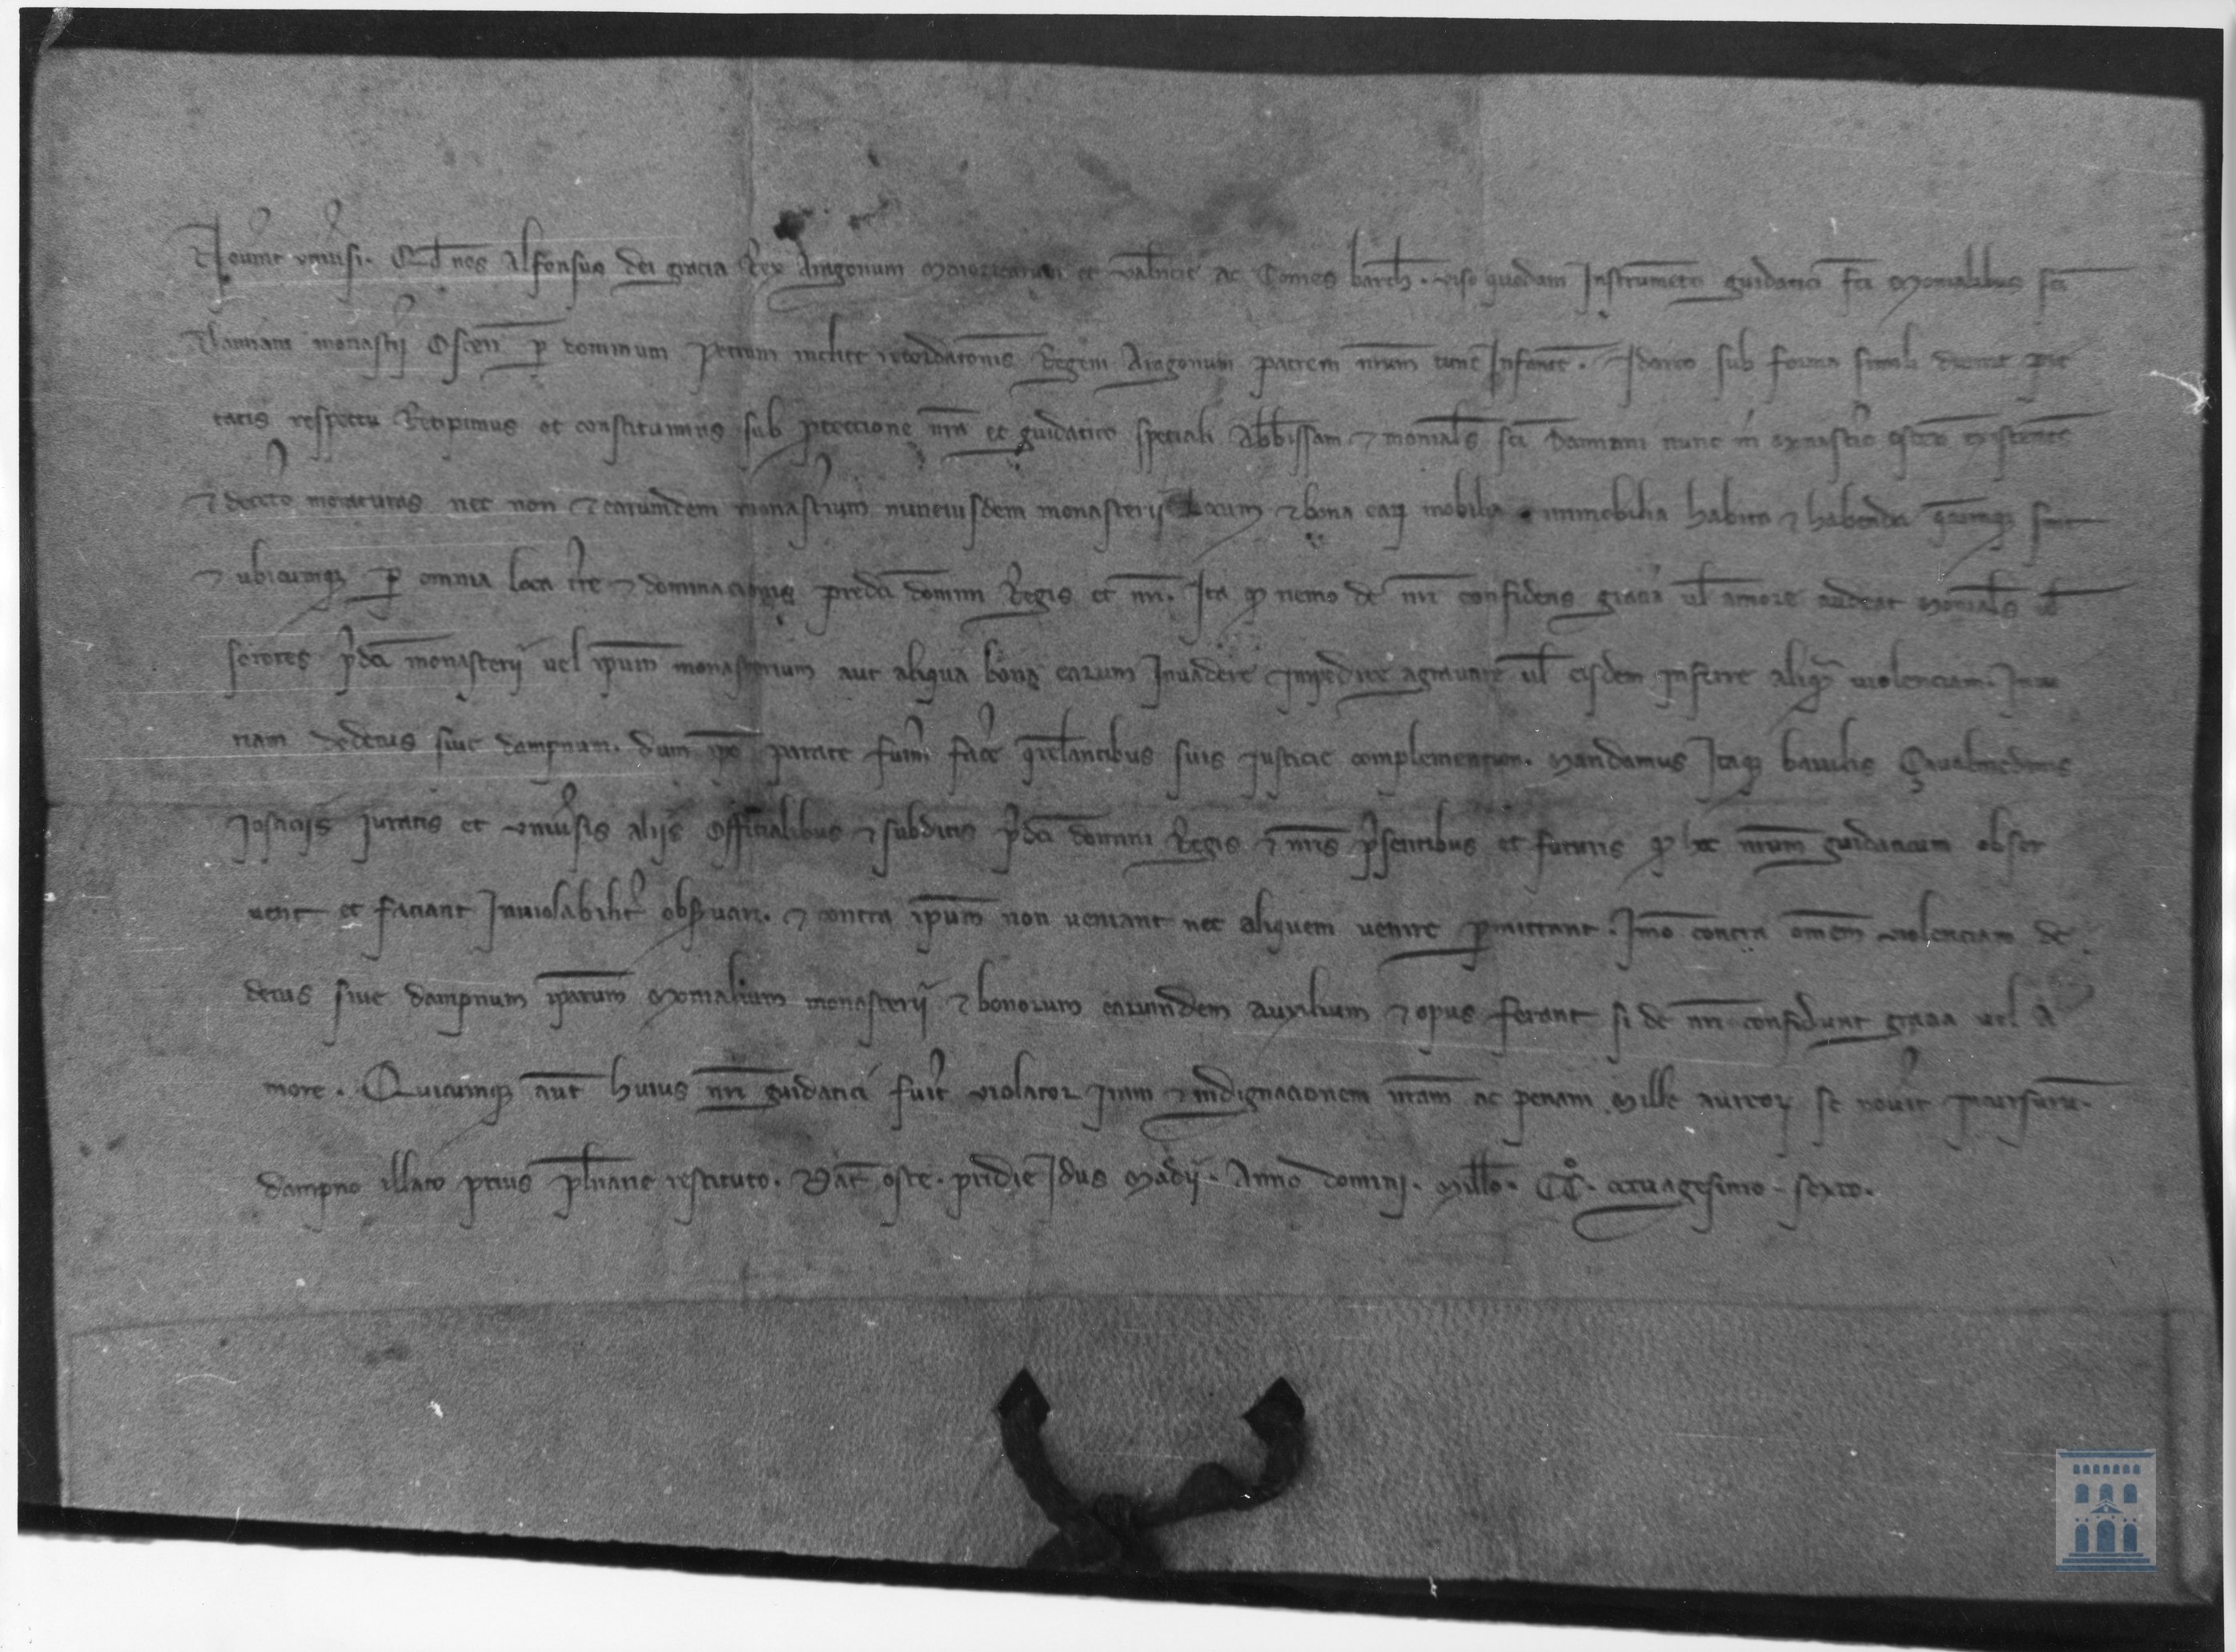 Nov̉int univ̉si. Qd̄ nos Alfonsus dei gracia Rex Aragonum Maioricarum et Valn̄cie ac Comes barch̄. viso quodam Instrum̄to guidatici fc̄i Monialibus sc̄i
Damiani monast̉ij Oscen̄ p̱ dominum Petrum inclite recordac̄onis Regem Aragonum patrem nr̄um tunc Infant̄. Idcirco sub forma simili divine pie
tatis respectu Recipimus et constituimus sub ꝓteccione nr̄a et guidatico speciali Abb̄issam ⁊ monial̄s sc̄i Damiani nunc in monast̉io existen̄tes
⁊ decet̉o moraturas nec non ⁊ earumdem monast̉ium eiusdem monasterij locum ⁊ bona eaꝝ mobilia immobilia habita ⁊ habenda sint
⁊ ubicumqꝫ p̱ omnia loca t̉re ⁊ dominacionis predc̄i domini Regis et nr̄i. Ita ꝙ nemo de nr̄i confidens gracia ul̄ amore audeat monial̄s ul̄
sorores p̉dc̄i monasterij vel ip̄um monasterium aut aliqua bona earum Invadere Impedire agravare ul̄ eisdem inferre aliqᷓ violenciam. Iniu
riam dedecus sive dampnum. dum ip̄e parate fủint fac̉e q̉rel̄antibus suis Justicie complementum. Mandamus Itaqꝫ baiulis Çavalmedinis
Josticijs Juratis et univ̉sis alijs Officialibus ⁊ subditis p̉dc̄i domini Regis ⁊ nr̄is p̉sentibus et futuris ꝙ hoc nr̄um guidaticum obser
vent et faciant Inviolabilit̉ obs̉vari. ⁊ contra ip̄um non veniant nec aliquem venire p̱mittant. Imo contra om̄em violenciam de
decus sive dampnum ip̄arum Monialium monasterij ⁊ bonorum earumdem auxilium ⁊ opus ferant si de nr̄i confidunt gracia vel a
more. Quicumqꝫ aut̄ huius nr̄i guidatici fủit violator Iram ⁊ indignacionem nr̄am ac penam Mille aureoꝝ se nov̉it incursurū.
dampno illato prius pl̄narie restituto. Dat̄ osce. pridie Idus Madij. Anno domini. Mill̄o. CC°. octuagesimo sexto.